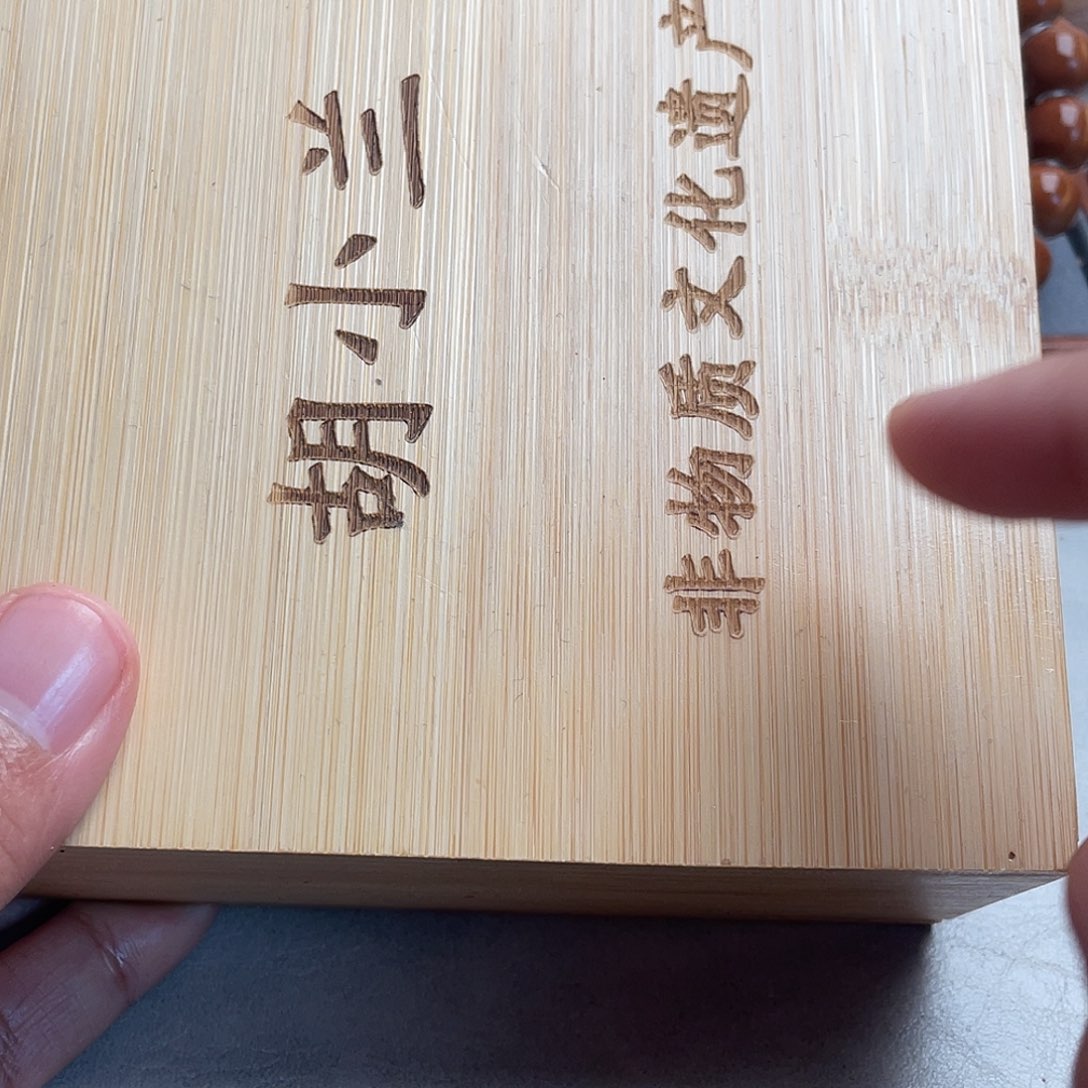 胡小兰
非物质文化遗产